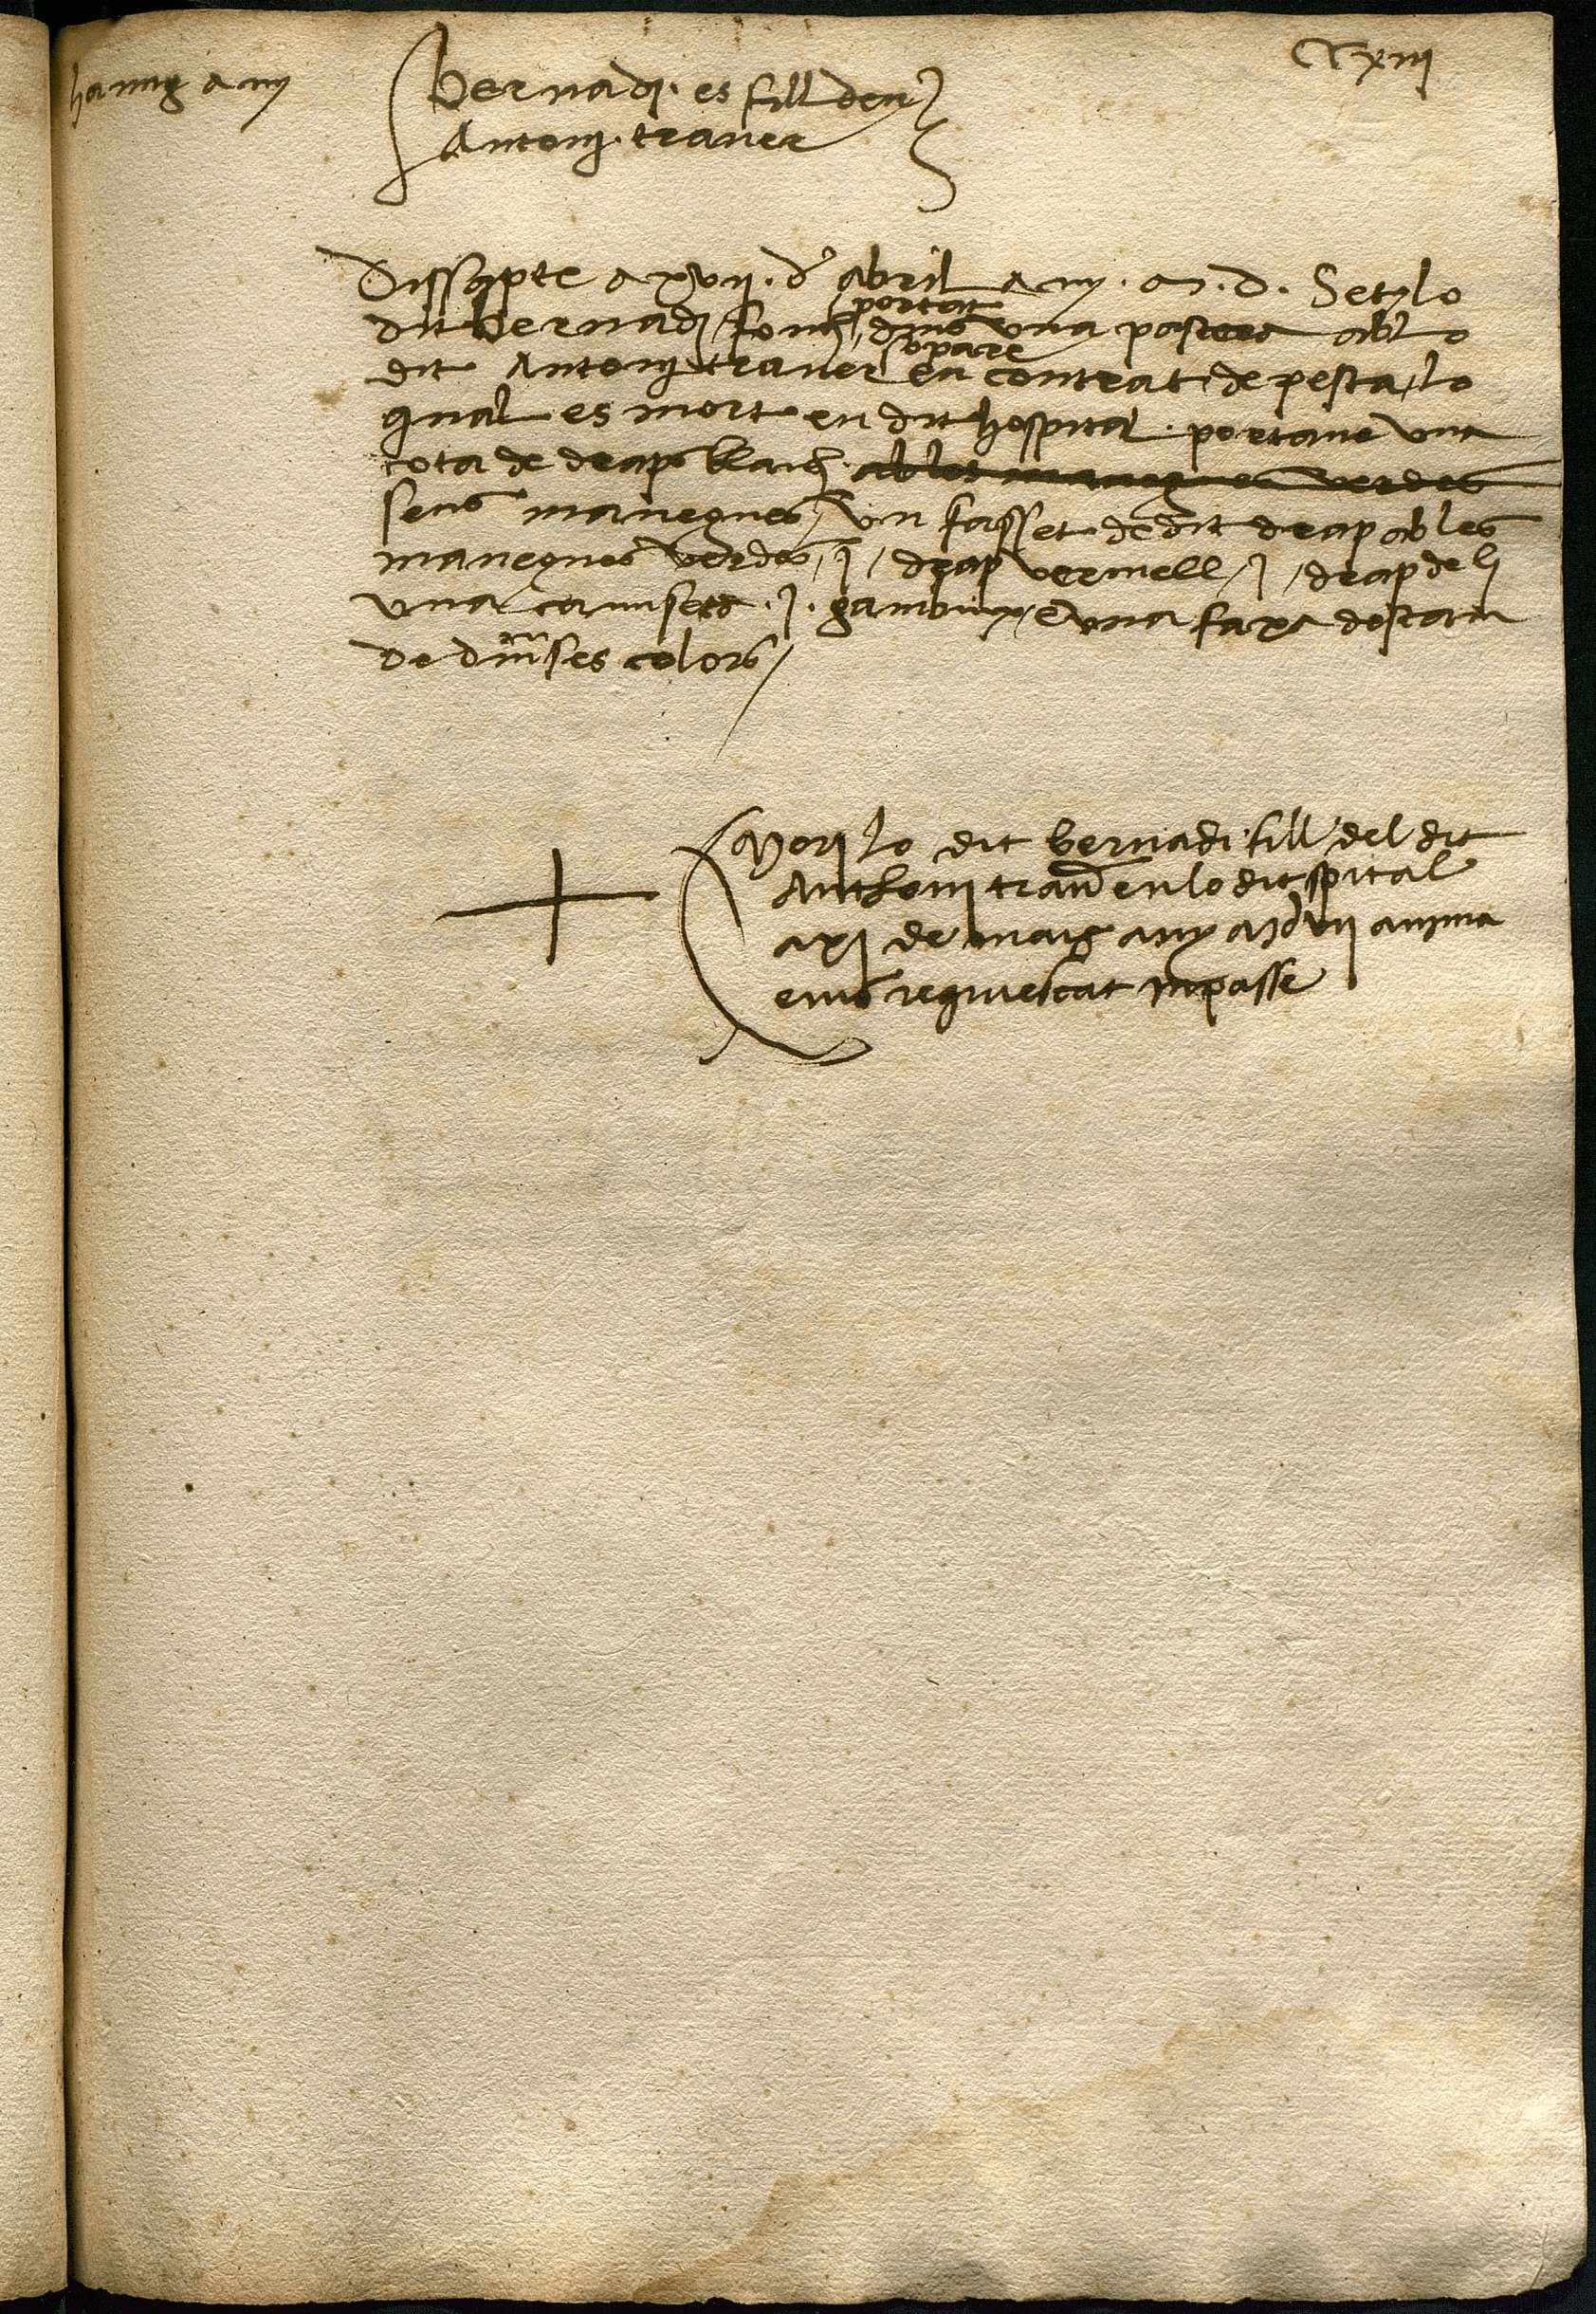 ha mig any
Bernadj. es fill den
Antonj. traver
CCxiij
Dissapte a xvij. d abril any. m. d. Set, lo
dit Bernadj, fonch, portat dins una pastera ab lo
dit Antonj traver son pare en contrat de pesta, lo
qual es mort en dit hospital. portave una
cota de drap blanch. ab les manegues verdes
sens manegues, un sasset de dit drap ab les
manegues verdes, j, drap vermell, j, drap de lj
una camseta. j. gambuix, e una faxa destam
de diverses colors,
Morj lo dit bernadi fill del dit
Anthonj traver en lo dit spital
a xj de maig any mdvij anyma
eius requiescat in passe